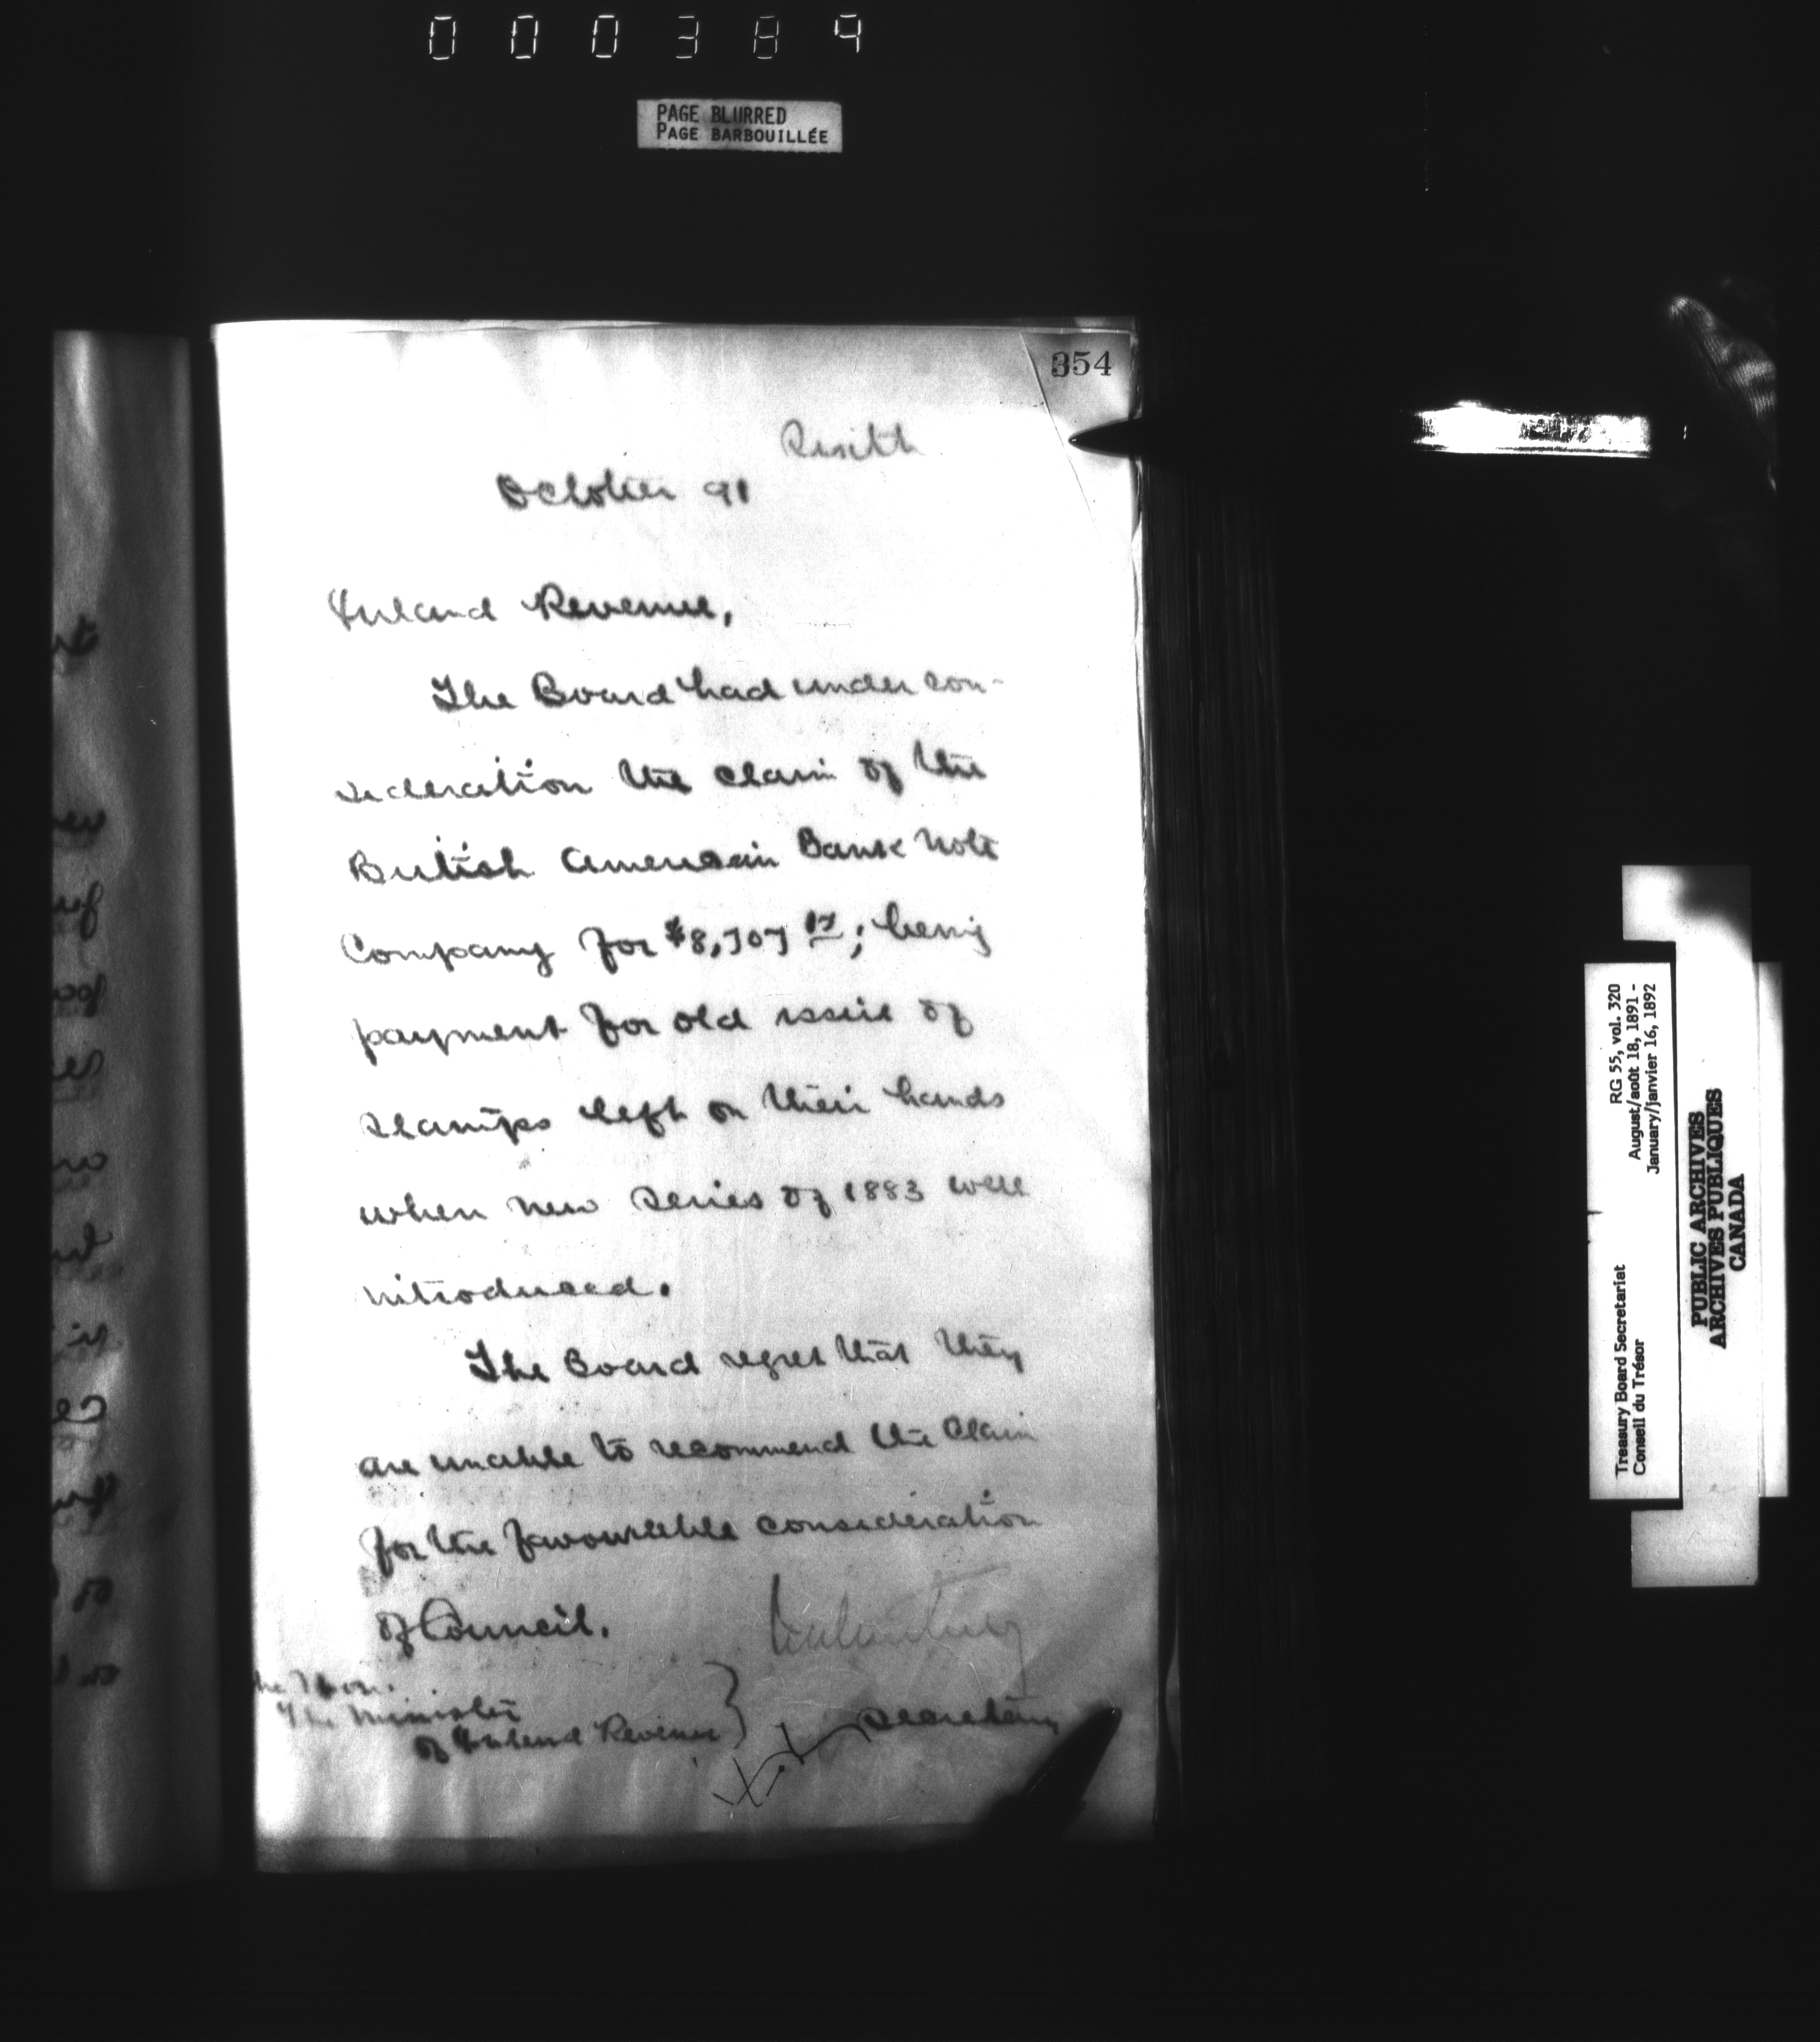 000389
PAGE BLURRED
PAGE BARBOUILLÉE
354
October 91
Inland Revenue,
The Board had under con-
sideration the claim of the
British American Bank Note
Company for $8,707 17; being
payment for old issue of
stamps left on their hands
when new series of 1883 were
introduced.
The Board regret that they
are unable to recommend the claim
for the favourable consideration
of Council.
The Hon.
The Minister
of Inland Revenue
Secretary
RG 55, vol. 320
August/août 18, 1891 -
January/janvier 16, 1892
Treasury Board Secretariat
Conseil du Trésor
PUBLIC ARCHIVES
ARCHIVES PUBLIQUES
CANADA